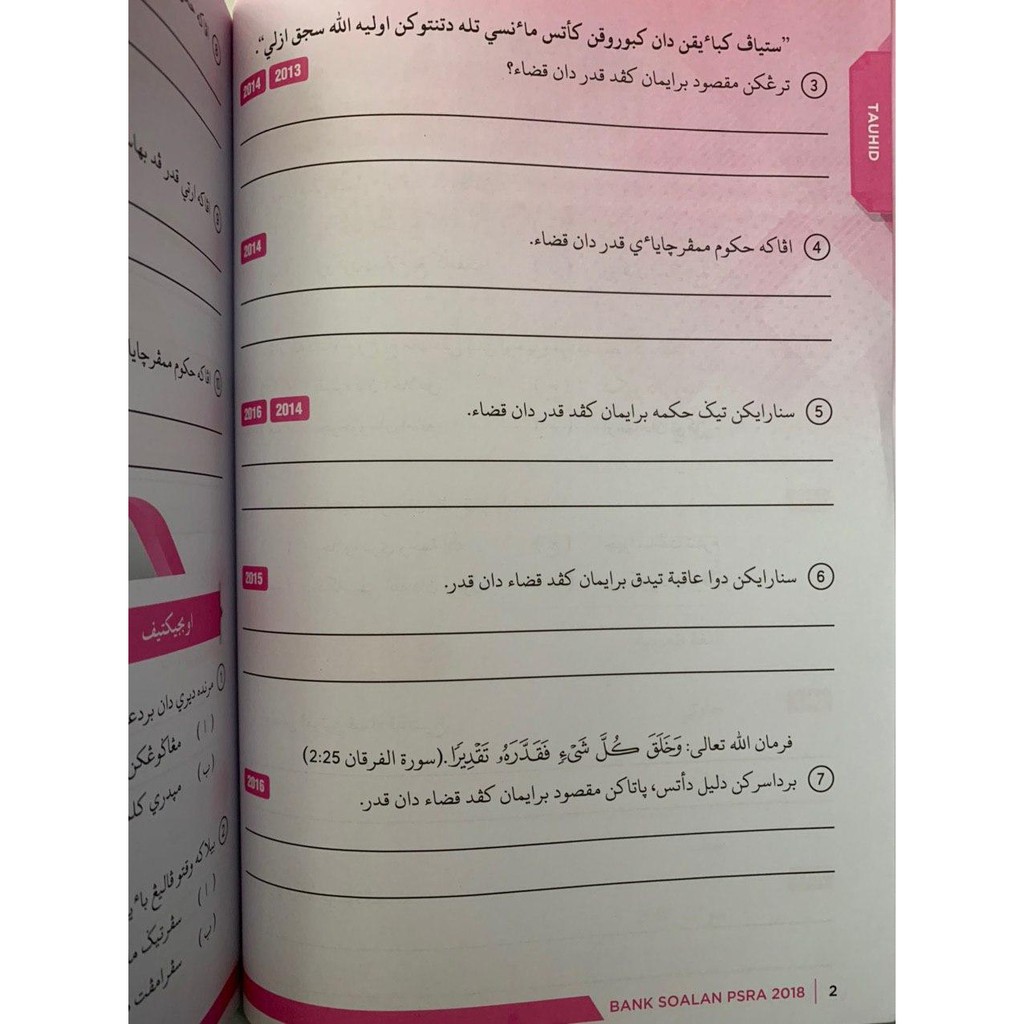 "ستياڤ كباءيقن دان كبوروقن كأتس ماءنسي تله دتنتوكن اوليه الله سجق ازلي".
3 ترڠكن مقصود برايمان كڤد قدر دان قضاء؟
2013 2014
TAUHID
4 اڤاكه حكوم ممڤرچاياءي قدر دان قضاء.
2014
5 سنارايكن تيݢ حكمه برايمان كڤد قدر دان قضاء.
2014 2016
6 سنارايكن دوا عاقبة تيدق برايمان كڤد قضاء دان قدر.
2015
فرمان الله تعالى: وَخَلَقَ كُلَّ شَىْءٍ فَقَدَّرَهُۥ تَقْدِيرًا. (سورة الفرقان 2:25)
7 برداسركن دليل دأتس، ڽاتاكن مقصود برايمان كڤد قضاء دان قدر.
2016
BANK SOALAN PSRA 2018 | 2
اڤاكه ارتي قدر ڤد بهاس
اڤاكه حكوم ممڤرچايا
اوبجيكتيف
1 مرنده ديري دان بردعا
(ا) مڠاكوڠكن
(ب)
2
(ا)
(ب)